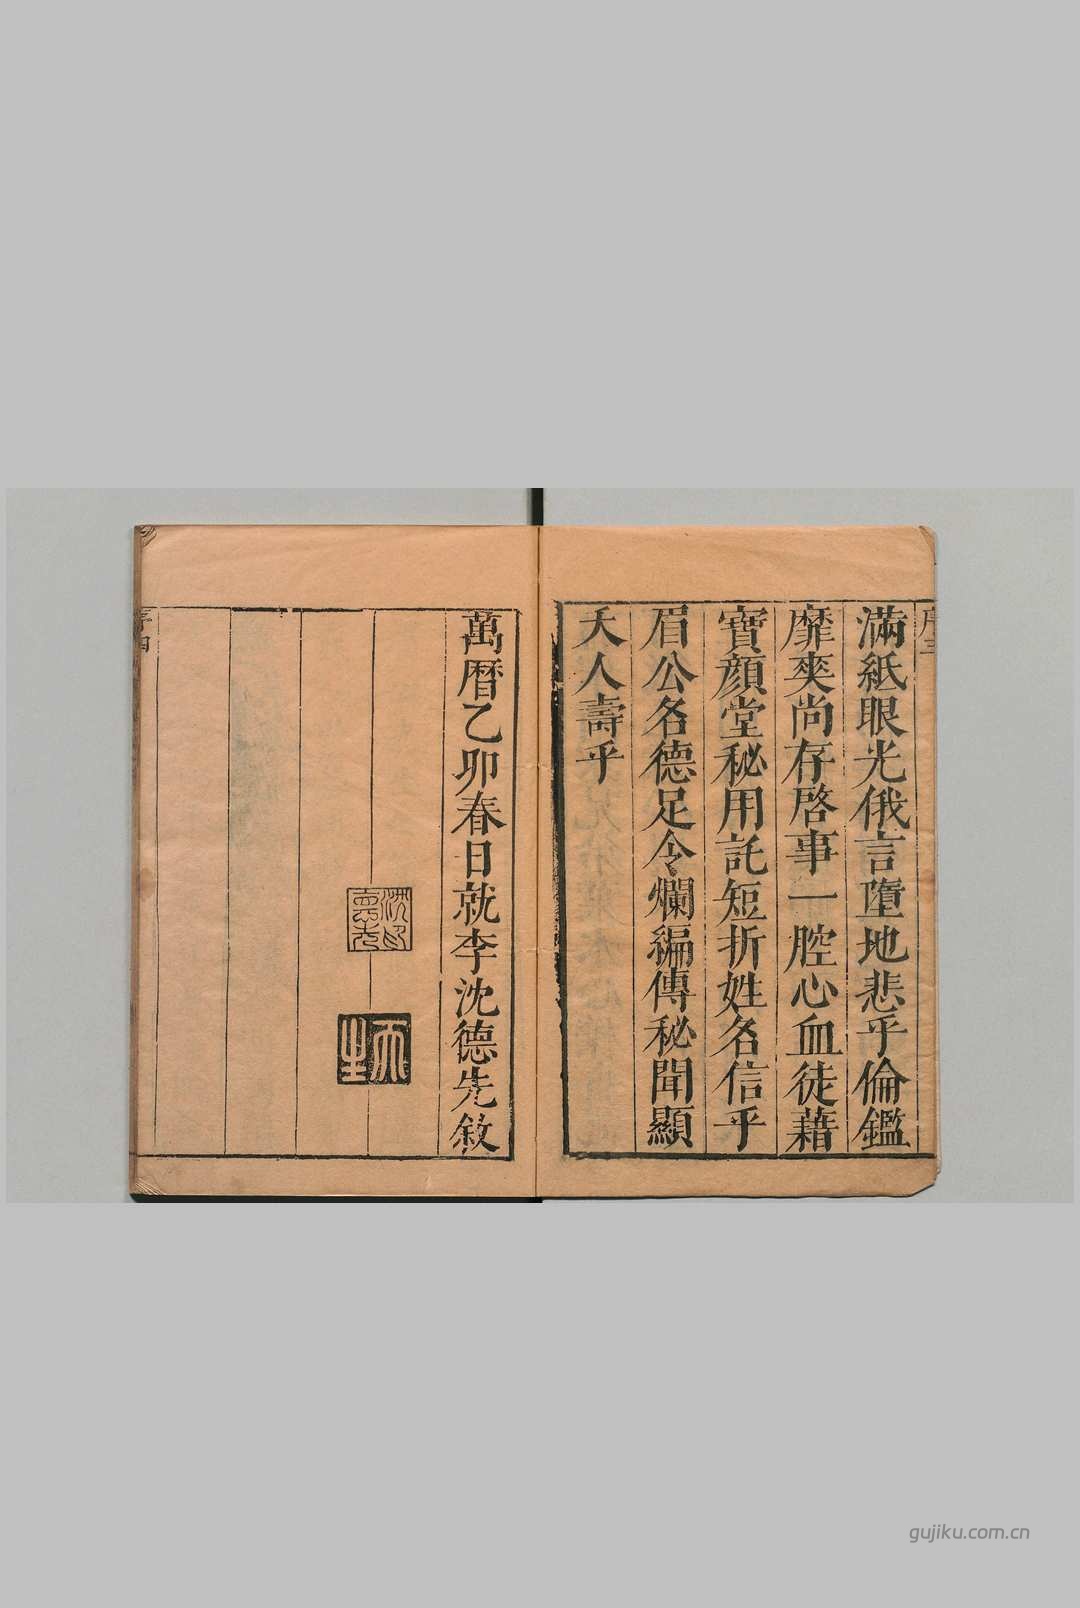 序三
滿紙眼光俄言墮地悲乎倫鑑
靡爽尚存啓事一腔心血徒藉
寶顏堂秘用託短折姓名信乎
眉公名德足令爛編傳秘聞顯
夭人壽乎
萬曆乙卯春日就李沈德先敘
天生
序四
gujiku.com.cn